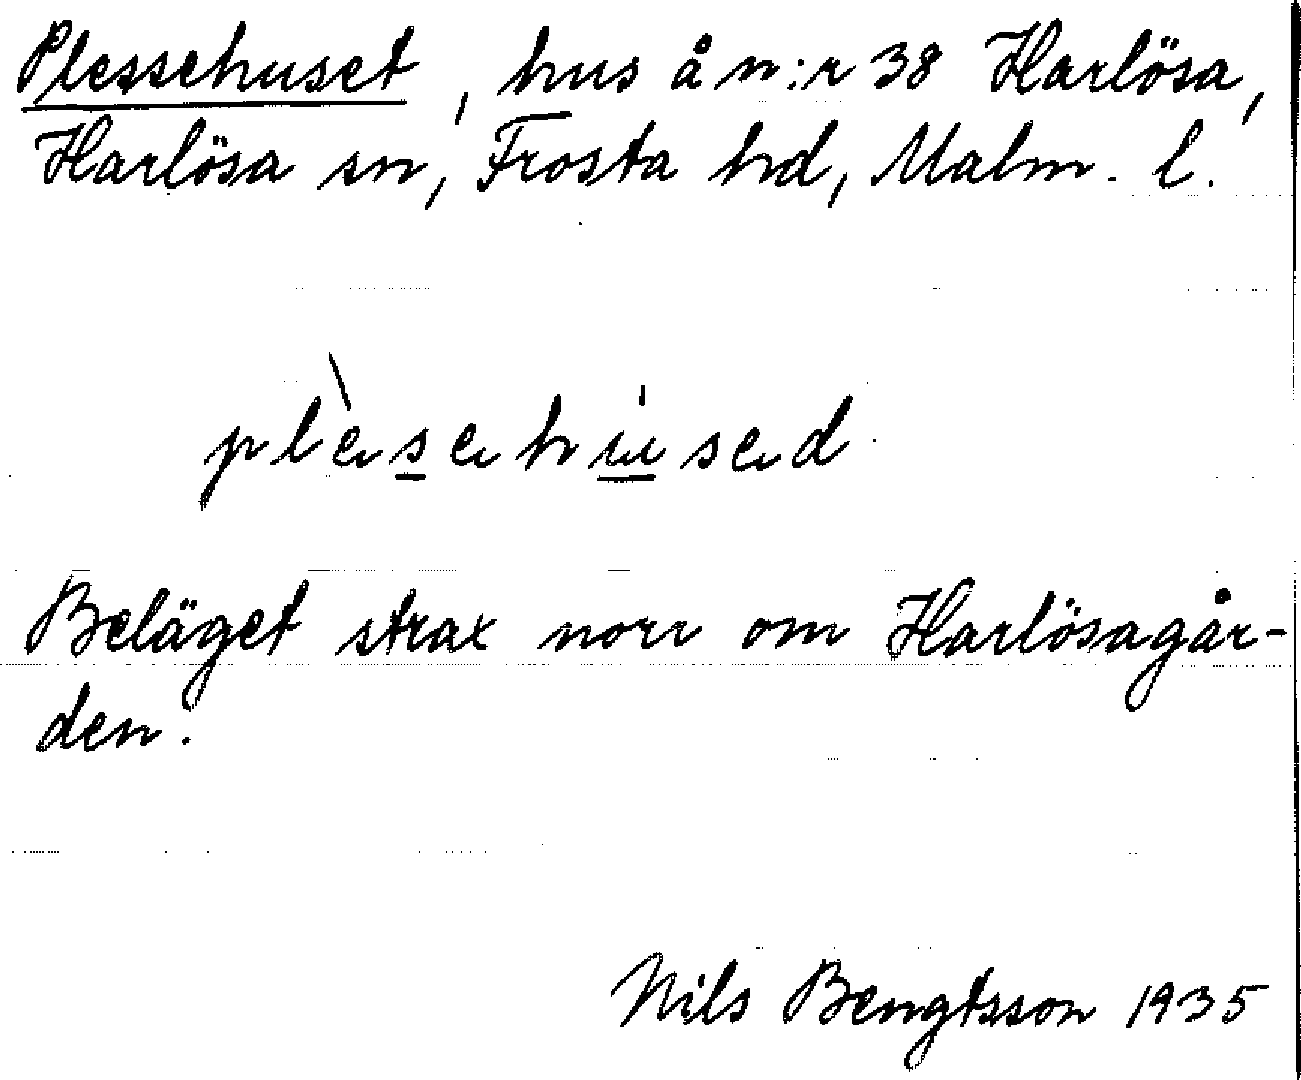 Plessehuset, hus å n:r 38 Harlösa,
Harlösa sn, Frosta hd, Malm. l.
plèsehúsed
Beläget strax norr om Harlösagår-
den.
Nils Bengtsson 1935